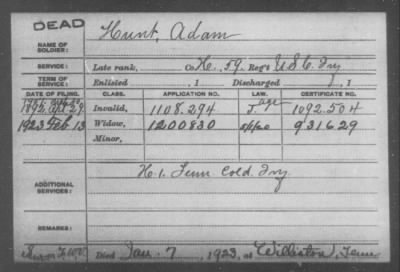 DEAD
Hunt, Adam
NAME OF SOLDIER:
SERVICE: Late rank, Co. H., 59, Reg't U.S.C. Inf
TERM OF SERVICE: Enlisted , 1 Discharged , 1
DATE OF FILING. CLASS. APPLICATION NO. LAW. CERTIFICATE NO.
1892, 29 Invalid, 1108.294 J age 1092.504
1923 Feb 13 Widow, 1200830 5/1/20 931629
Minor,
ADDITIONAL SERVICES: H. 1. Tenn Cold. Inf.
REMARKS:
Died Jan. 7, 1923, at Williston, Tenn